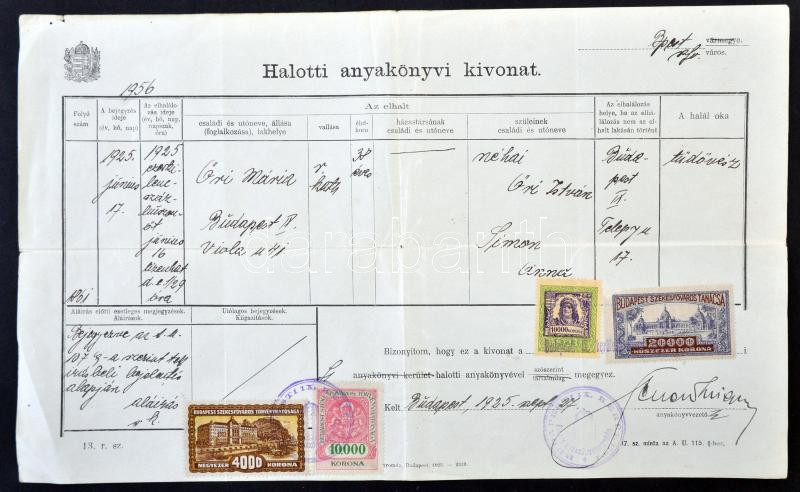 Bpest vármegye.
város.
Halotti anyakönyvi kivonat.
1956
Folyó szám
A bejegyzés ideje (év, hó, nap)
Az elhalálozás ideje (év, hó, nap, napszak, óra)
Az elhalt
családi és utóneve, állása (foglalkozása), lakhelye
vallása
életkora
házastársának családi és utóneve
szüleinek családi és utóneve
Az elhalálozás helye, ha az elhálálozás nem az elhelt lakásán történt
A halál oka
1861
1925. június 17.
1925 ezerkilencszázhuszonöt június 16 tizenhat d.e. 1/29 óra
Őri Mária
Budapest IV.
Viola u 41
r. kath
38 éves
néhai
Őri István
Simon
Anna
Budapest IX. Telepy u 17.
tüdővész
darabanth
Aláírás előtti esetleges megjegyzések. Aláírások.
Utólagos bejegyzések. Kiigazítások.
alapján
aláírás
Bizonyítom, hogy ez a kivonat a
i
anyakönyvi kerület halotti anyakönyvével szószerint tartalmilag megegyez.
Kelt Budapest, 1925. szept 27.
anyakönyvvezető
10000 KORONA
BUDAPEST SZÉKESFŐVÁROS TANÁCSA
20000
HÚSZEZER KORONA
BUDAPEST SZÉKESFŐVÁROS TÖRVÉNYHATÓSÁGA
NÉGYEZER 4000 KORONA
10.000
KORONA
13. r. sz.
Budapest, 1925.
17. sz. minta az A. U. 115. §-hoz.